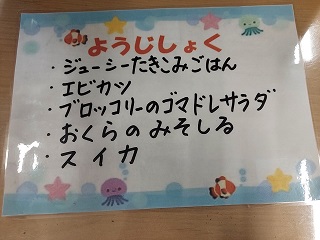 ようじしょく
・ジューシーたきこみごはん
・エビカツ
・ブロッコリーのゴマドレサラダ
・おくらのみそしる
・スイカ